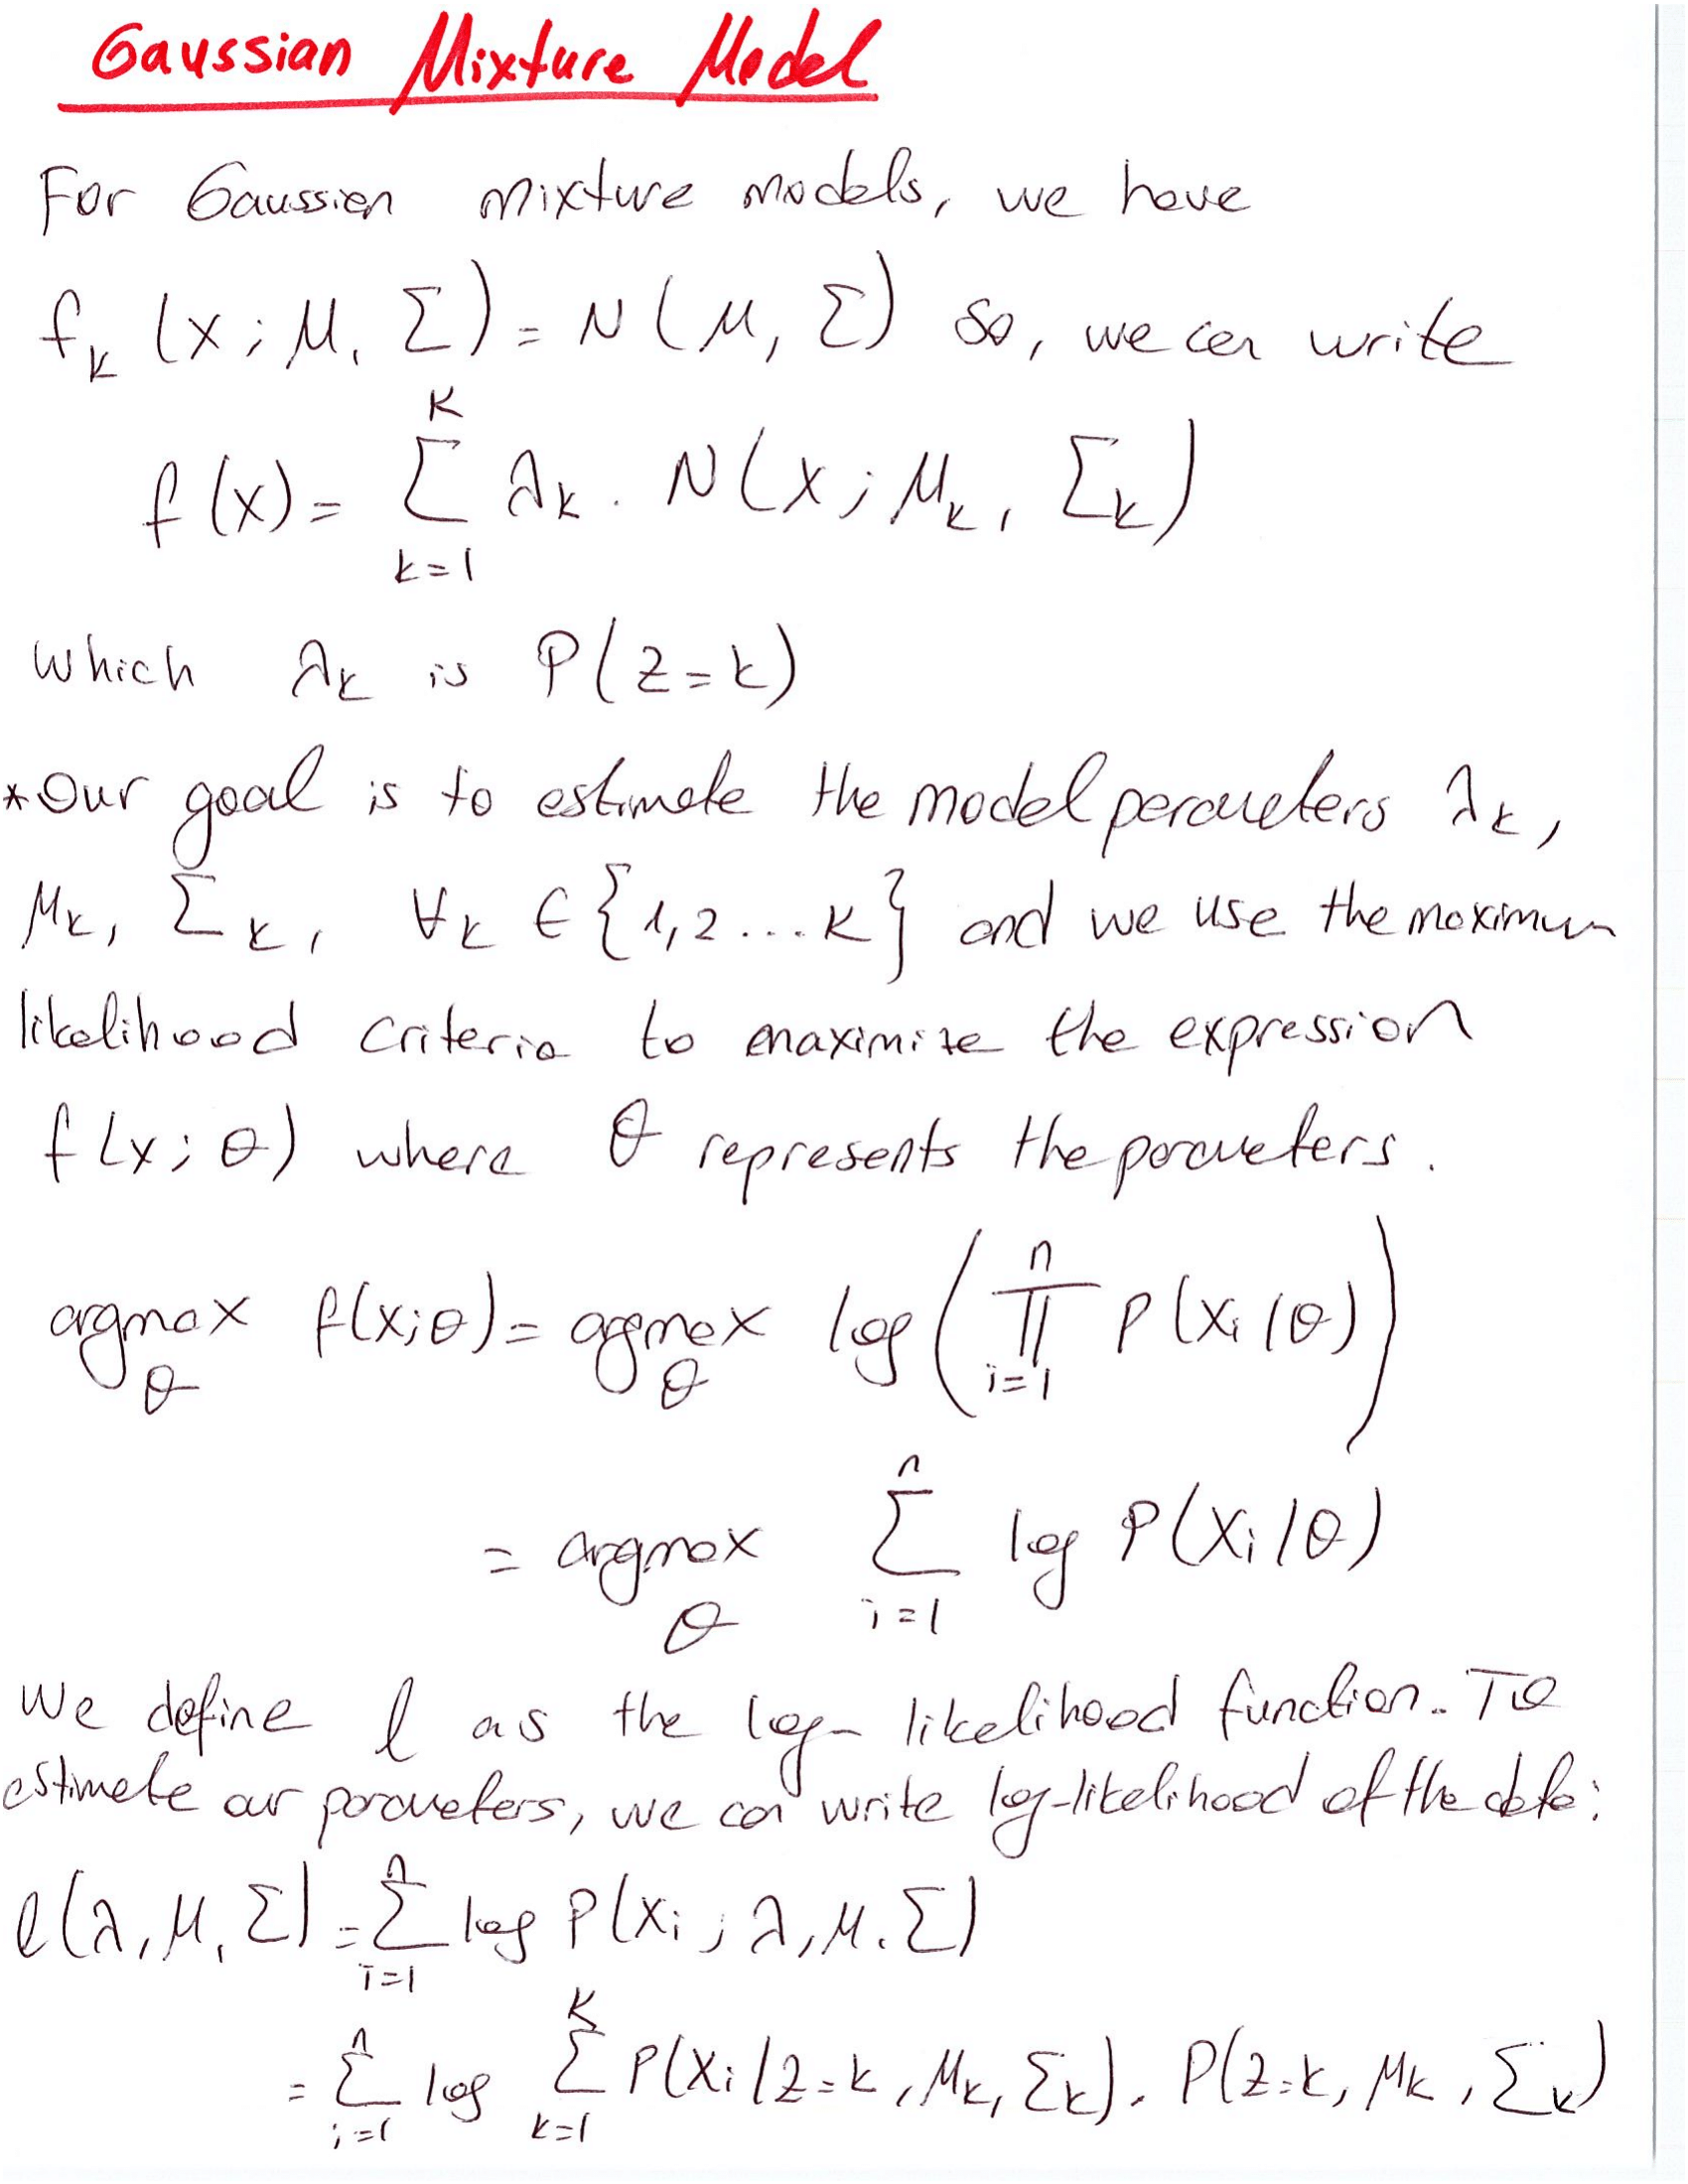 Gaussian Mixture Model
For Gaussian mixture models, we have
f_k (x; μ, Σ) = N(μ, Σ) so, we can write
f(x) = Σ_{k=1}^{K} λ_k . N(x; μ_k, Σ_k)
which λ_k is P(z=k)
*Our goal is to estimate the model parameters λ_k,
μ_k, Σ_k, ∀k ∈ {1,2...K} and we use the maximum
likelihood criteria to maximize the expression
f(x; θ) where θ represents the parameters.
argmax_θ f(x;θ) = argmax_θ log(∏_{i=1}^{n} P(x_i/θ))
= argmax_θ Σ_{i=1}^{n} log P(x_i/θ)
We define l as the log-likelihood function. To
estimate our parameters, we can write log-likelihood of the data:
l(λ, μ, Σ) = Σ_{i=1}^{n} log P(x_i; λ, μ, Σ)
= Σ_{i=1}^{n} log Σ_{k=1}^{K} P(x_i/z=k, μ_k, Σ_k) . P(z=k, μ_k, Σ_k)